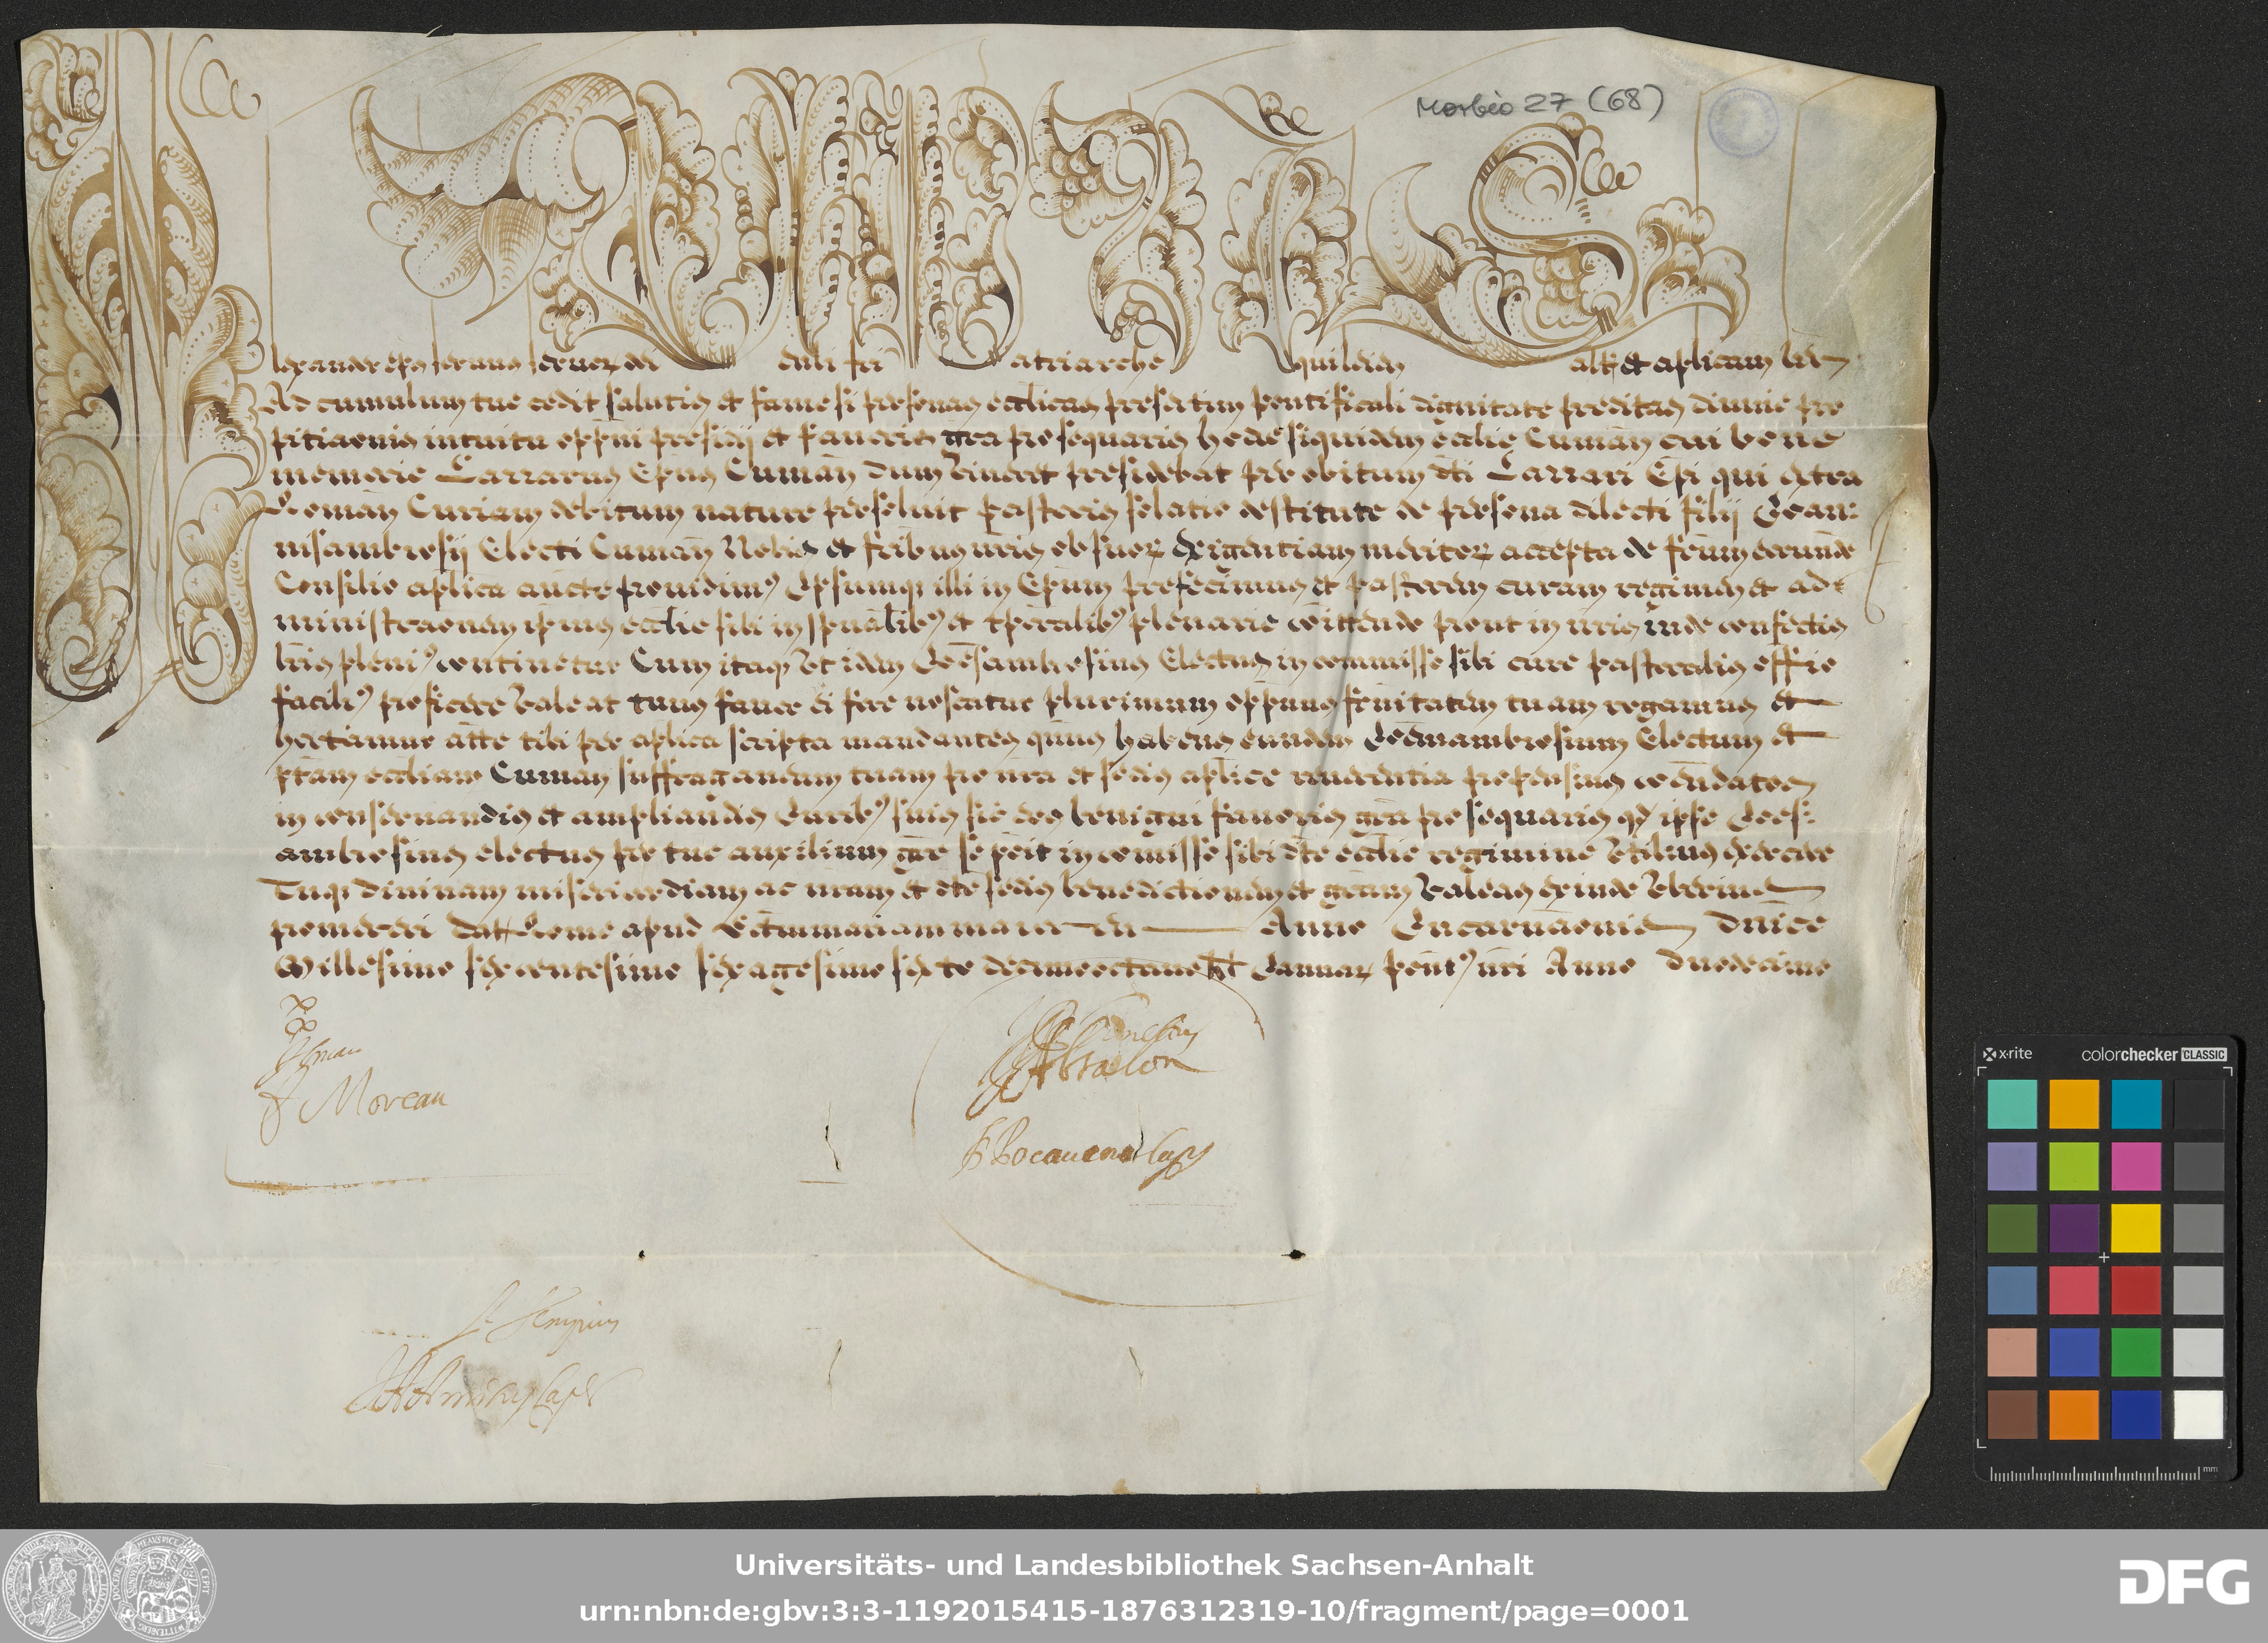 Morbio 27 (68)
Alexander ep̄us seruus seruor dei Ven̄bili fr̄i Patriarche Aquileien Salt et aplicam ben
Ad cumulum tue cedit salutis et fame si personas ecclicas presertim pontificali dignitate preditas diuine pro
pitiaonis intuitu opp̄ni presidij et fauoris gr̄a prosequaris hodie siquidem ecclie Cuman̄ cui bone
memorie Lazzarus Ep̄us Cuman̄ dum viueret presidebat per obitum dt̄i Lazzari Ep̄i qui extra
Roman̄ Curiam debitum nature persoluit pastoris solatio destitute de persona dilecti filij Joan:
nisambrosij Electi Cuman̄ Nobis et frībus nrīs ob suor exigentiam meritor accepta de frūm eorunde
Consilio aplica aucte prouidimus Ipsumq illi in Ep̄um prefecimus et pastorem curam regimen et ad-
ministraonem ipsius ecclie sibi in spūalibus et tp̄ralibus plenarie com̄ittendo prout in nrīs inde confectis
lrīs plenius continetur Cum itaq ut idem Joēsambrosius Electus in commisse sibi cure pastoralis offio
facilius proficere valeat tuus fauor ei fore noscatur plurimum opp̄nus frnitatem tuam rogamus et
hortamur atte tibi per aplica scripta mandantes qūus habens eundem Joemambrosium Electum et
ptam eccliam Cuman̄ suffraganeum tuam pro nr̄a et sedis aplice reuerentia propensius com̄endatos
in conseruandis et ampliandis Juribus suis sic eos benigni fauoris gr̄a prosequaris qd ipse Joes:
ambrosius electus per tue auxilium gr̄e se possit in com̄isse sibi dt̄e ecclie regimine utilius exercere
Tuq diuinam misericordiam ac nr̄am et dt̄e sedis benedictionem et gr̄am valeas exinde uberius
promereri Dat Rome apud S Mariam maiorem Anno Incarnāonis Dnīce
Millesimo sexcentesimo sexagesimo sexto decimooctauo Kl Januar Pont̄us nr̄i Anno Duodecimo
Moreau
Absalon
Universitäts- und Landesbibliothek Sachsen-Anhalt
urn:nbn:de:gbv:3:3-1192015415-1876312319-10/fragment/page=0001
DFG
x-rite colorchecker CLASSIC
mm